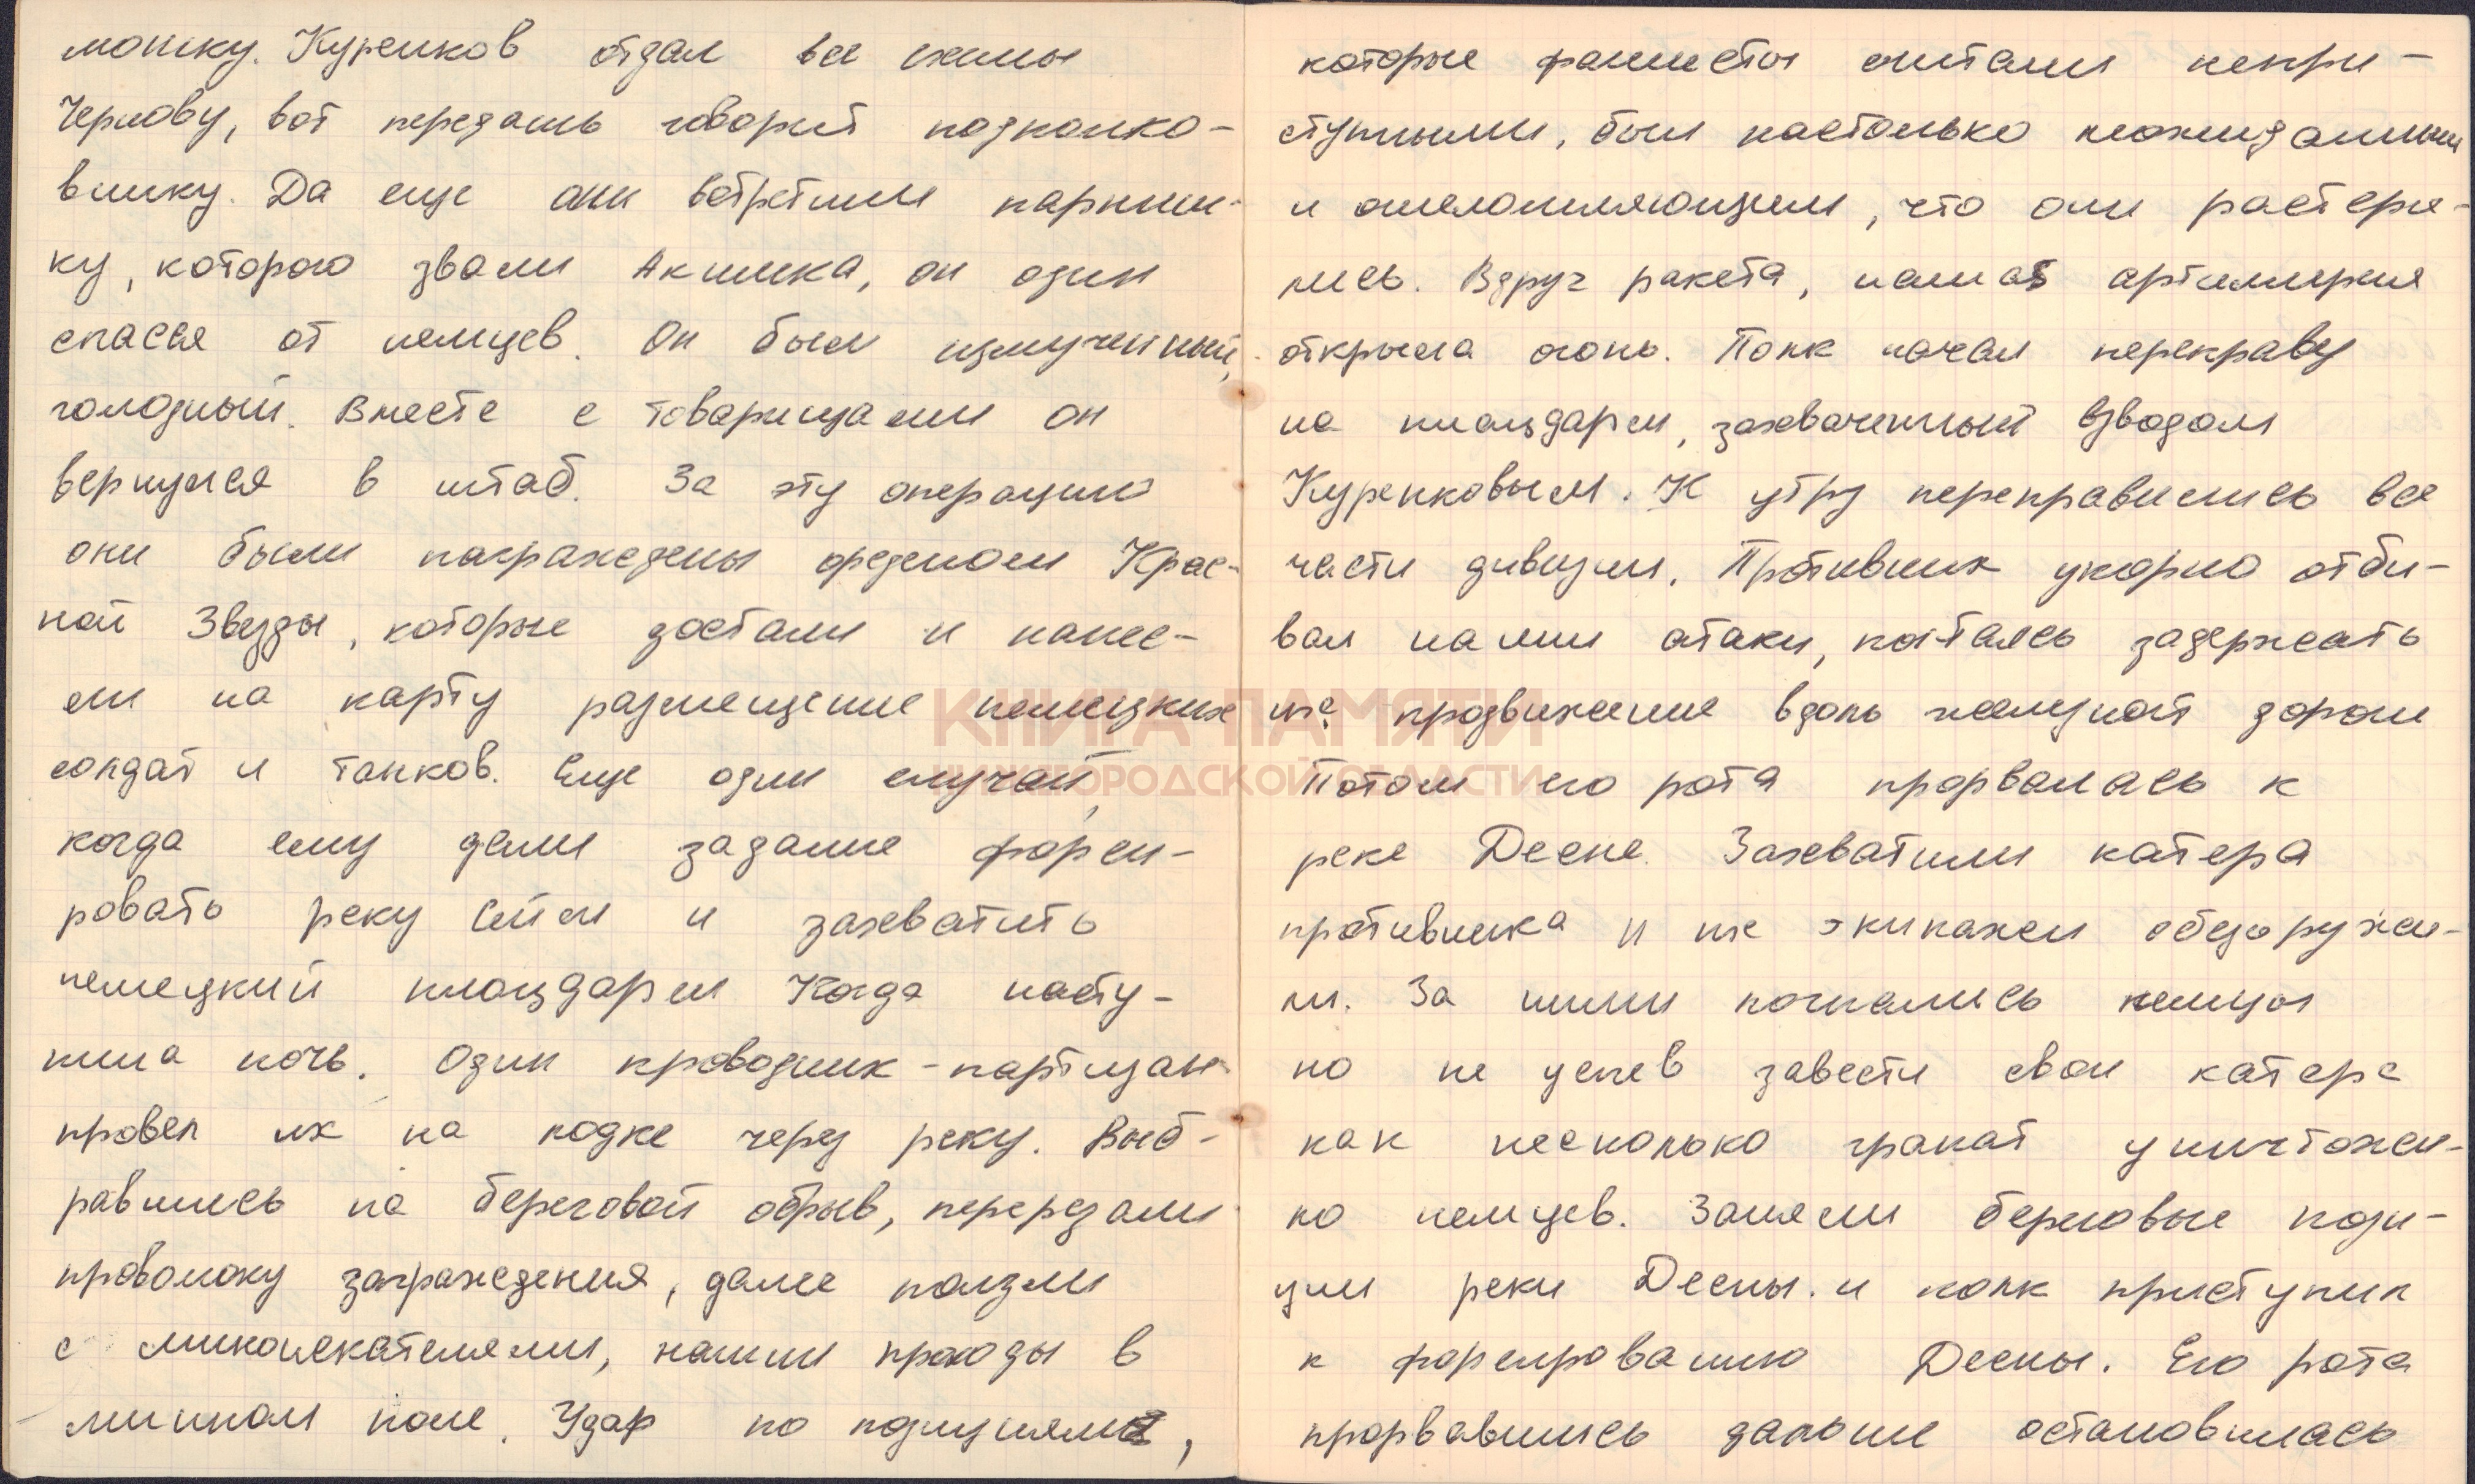 мошку. Куренков отдал все схемы
Чернову, вот передашь говорит подполко-
внику. Да еще они встретили парниш-
ку, которого звали Акимка, он один
спасся от немцев. Он был измученный,
голодный. Вместе с товарищами он
вернулся в штаб. За эту операцию
они были награждены орденом Крас-
ной Звезды, которые достали и нанес-
ли на карту размещение немецких
солдат и танков. Еще один случай,
когда ему дали задание форси-
ровать реку Сейм и захватить
немецкий плацдарм Когда насту-
пила ночь. Один проводник-партизан
провел их на лодке через реку. Выб-
равшись на береговой обрыв, перерезали
проволоку заграждения, далее ползли
с миноискателями, нашли проходы в
минном поле. Удар по позициям,
которые фашисты считали непри-
ступными, был настолько неожиданным
и ошеломляющим, что они растеря-
лись. Вдруг ракета, наша артиллерия
открыла огонь. Полк начал переправу
на плацдарм, захваченный взводом
Куренковым. К утру переправились все
части дивизии. Противник упорно отби-
вал наши атаки, пытаясь задержать
их продвижение вдоль железной дороги
Потом его рота прорвалась к
реке Десне. Захватили катера
противника и их экипажем обезоружи-
ли. За ними погнались немцы
но не успев завести свои катера
как несколько гранат уничтожи-
ло немцев. Заняли береговые пози-
ции реки Десны. и полк приступил
к форсированию Десны. Его рота
прорвавшись дальше остановилась
КНИГА ПАМЯТИ
НИЖЕГОРОДСКОЙ ОБЛАСТИ